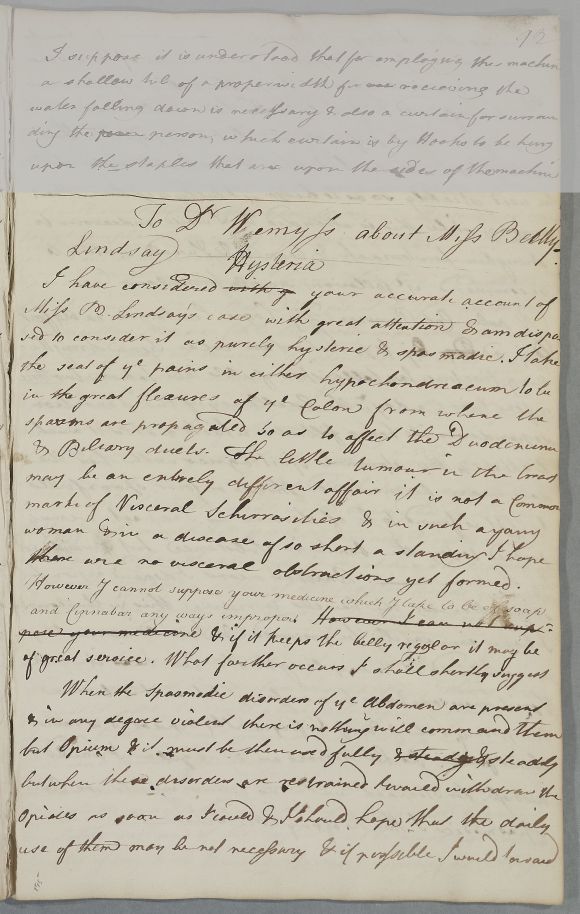 12
I suppose it is understood that for employing the machin
a shallow tub of a proper width for receiving the
water falling down is necessary & also a curtain for surroun
ding the person, which curtain is by Hooks to be hung
upon the staples that are upon the sides of the machin
To Dr Wemyss about Miss Betty
Lindsay
Hysteria
I have considered with y your accurate account of
Miss B. Lindsays case with great attention & am dispo
sed to consider it as purely hysteric & spasmodic. I take
the seat of ye pains in either hypochondreacum to be
in the great flexures of ye Colon from whence the
spasms are propagated so as to affect the Duodenum
& Biliary ducts. The little tumour in the breast
may be an entirely different affair it is not a Common
mark of Visceral Schirrosities & in such a young
woman & in a disease of so short a standing I hope
there are no visceral obstructions yet formed.
However I cannot suppose your medicine which I take to be of soap
and Cinnabar any ways improper. However I can not sup-
pose your medicine & if it keeps the belly regular it may be
of great service. What farther occurs I shall shortly suggest
When the Spasmodic disorders of ye Abdomen are present
& in any degree violent there is nothing will command them
but Opium & it must be then used fully & steadily & steadily
but when these disorders are restrained I would withdraw the
Opiates as soon as I could & I should hope that the daily
use of them may be not necessary & if possible I would